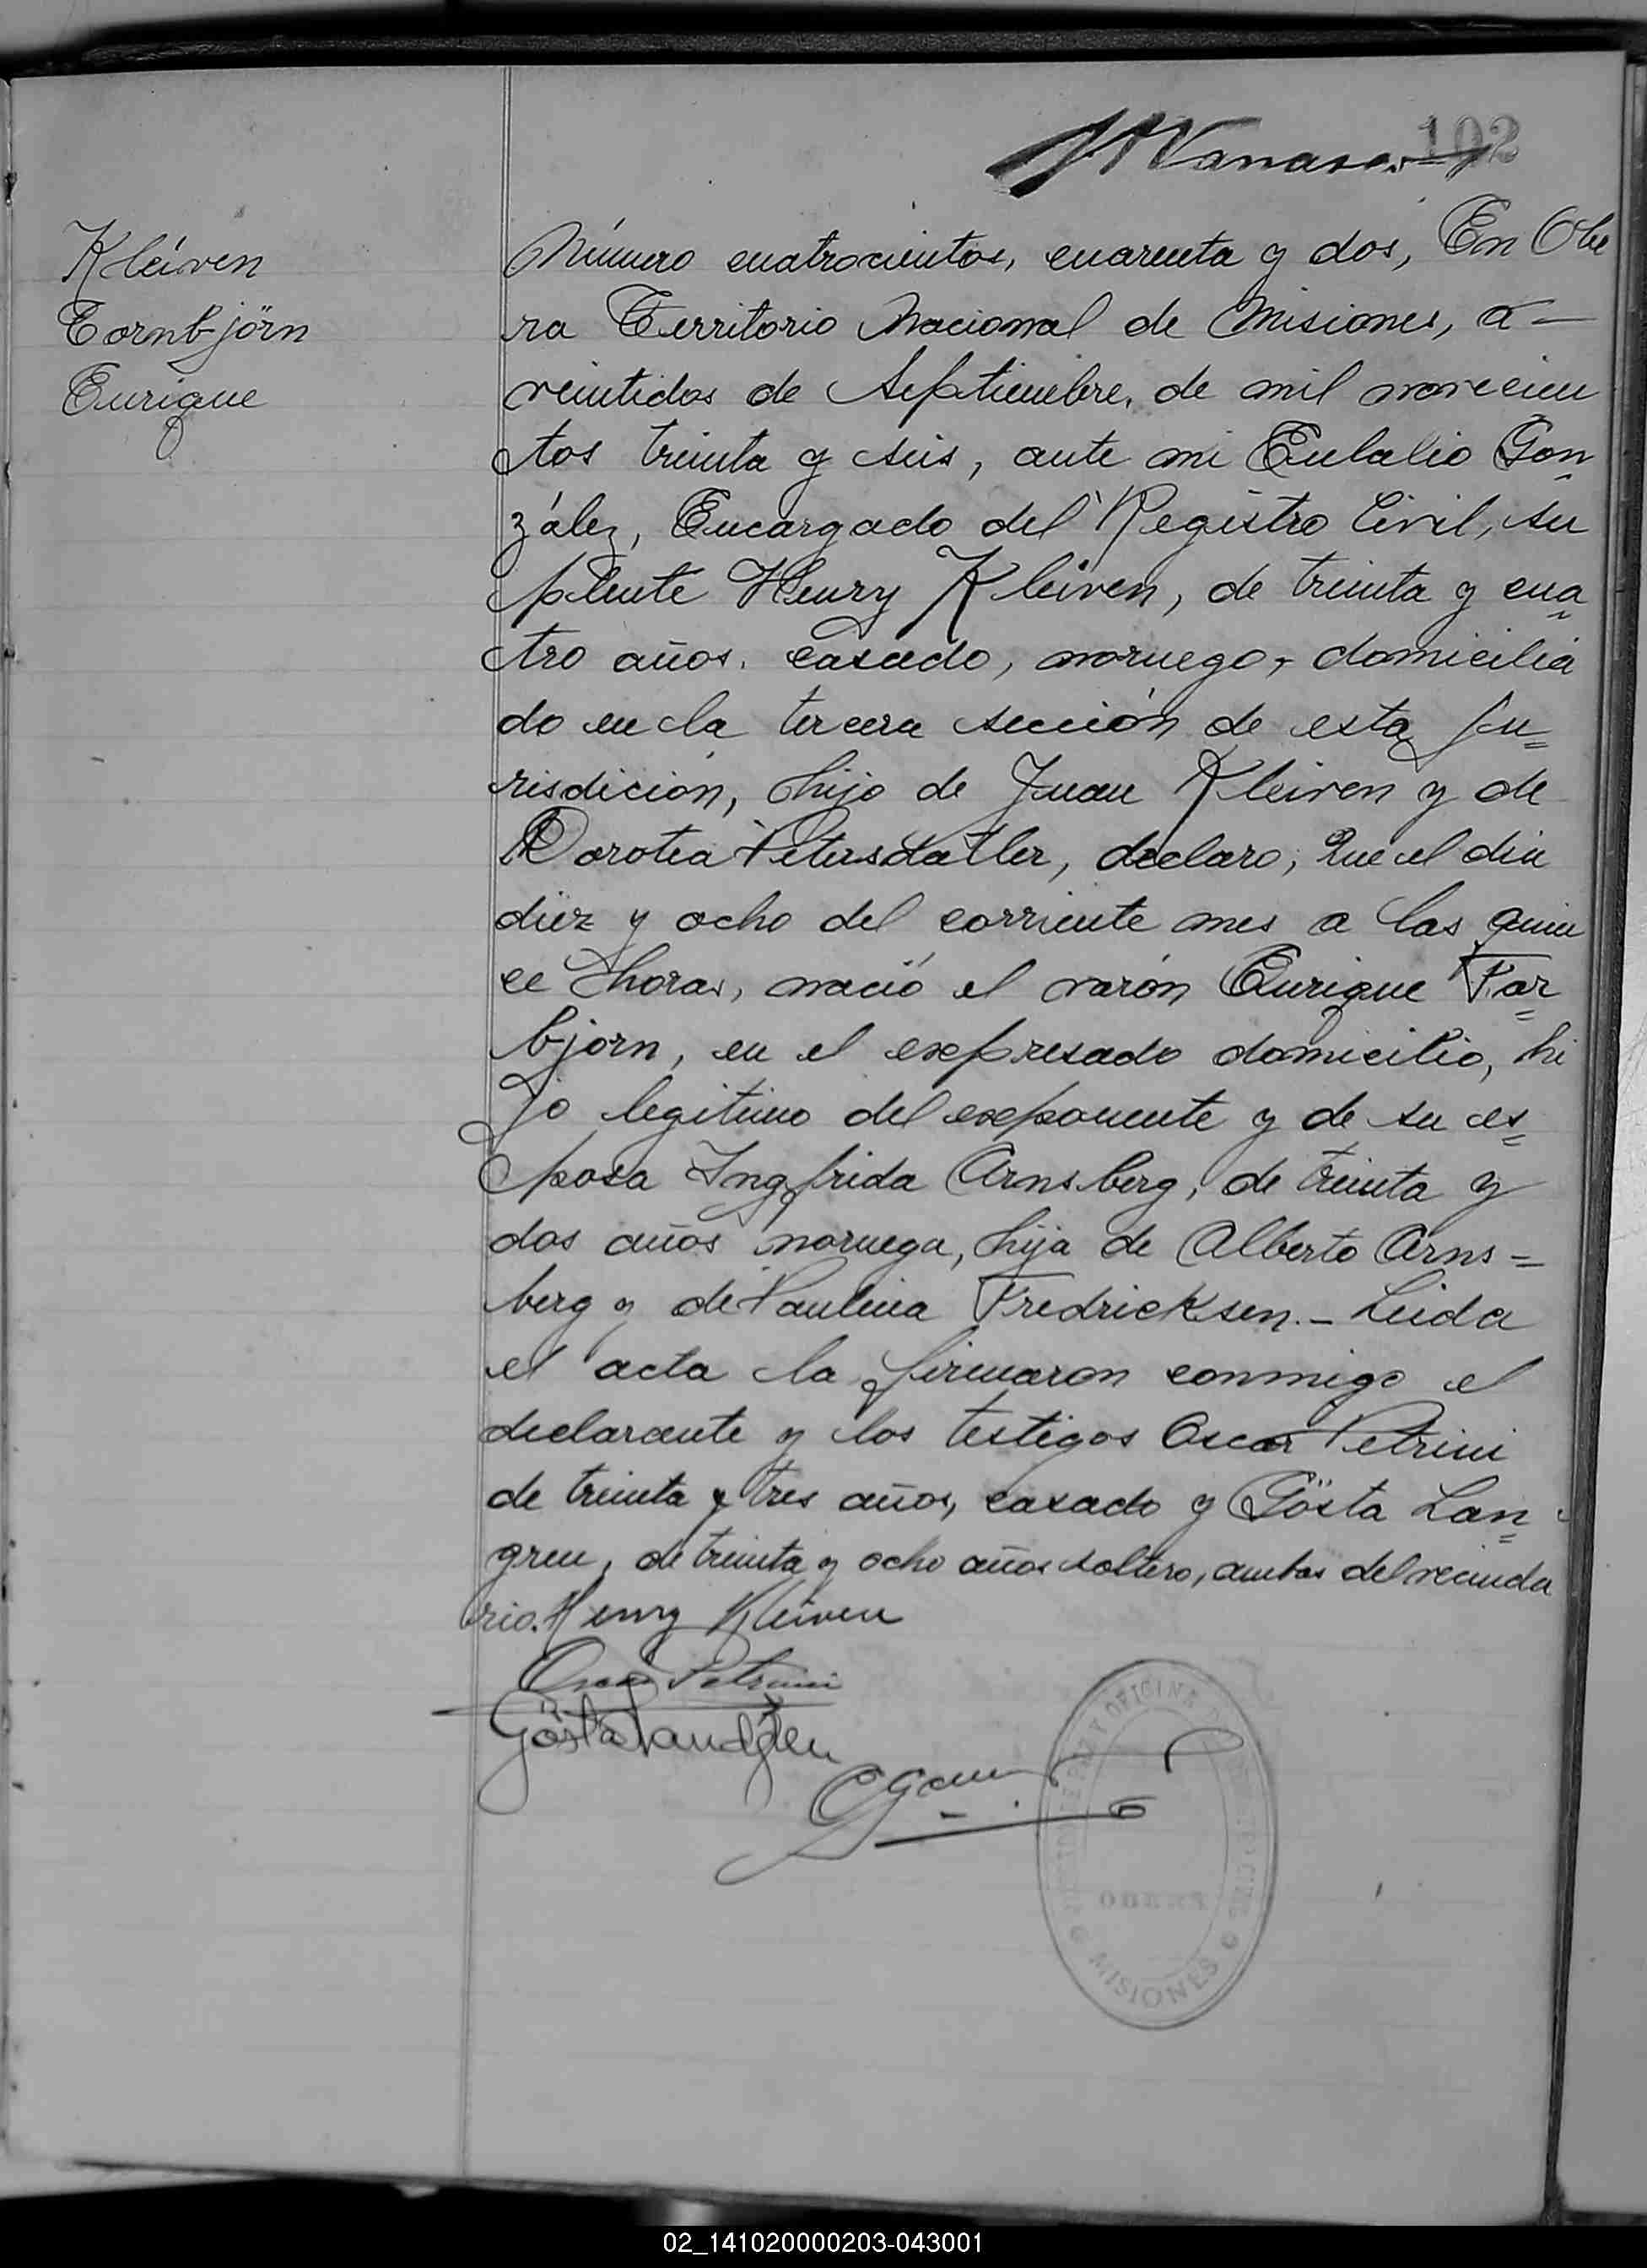 102
Kleiven
Tornbjörn
Enrique
Número cuatrocientos, cuarenta y dos, En Obe
ra Territorio Nacional de Misiones, a—
veintidos de Septiembre, de mil novecien
tos treinta y seis, ante mi Eulalio Gon
zález, Encargado del Registro Civil, su
plente Henry Kleiven, de treinta y cua
tro años, casado, noruego, domicilia
do en la tercera sección de esta ju=
risdicion, hijo de Juan Kleiven y de
Dorotea Petersdatter, declaro; Que el dia
diez y ocho del corriente mes a las quin
ce horas, nació el varón Enrique Tor=
bjorn, en el expresado domicilio, hi
jo legitimo del exponente y de su es=
posa Ingfrida Arnsberg, de treinta y
dos años noruega, hija de Alberto Arns=
berg y de Paulina Fredricksen.- Leida
el acta la firmaron conmigo el
declarante y los testigos Oscar Petrini
de treinta y tres años, casado y Gösta Lan=
gren, de treinta y ocho años soltero, ambos del vecinda
rio. Henry Kleiven
Oscar Petrini
Gösta Landgren
OFICINA
OBERA
MISIONES
02_141020000203-043001